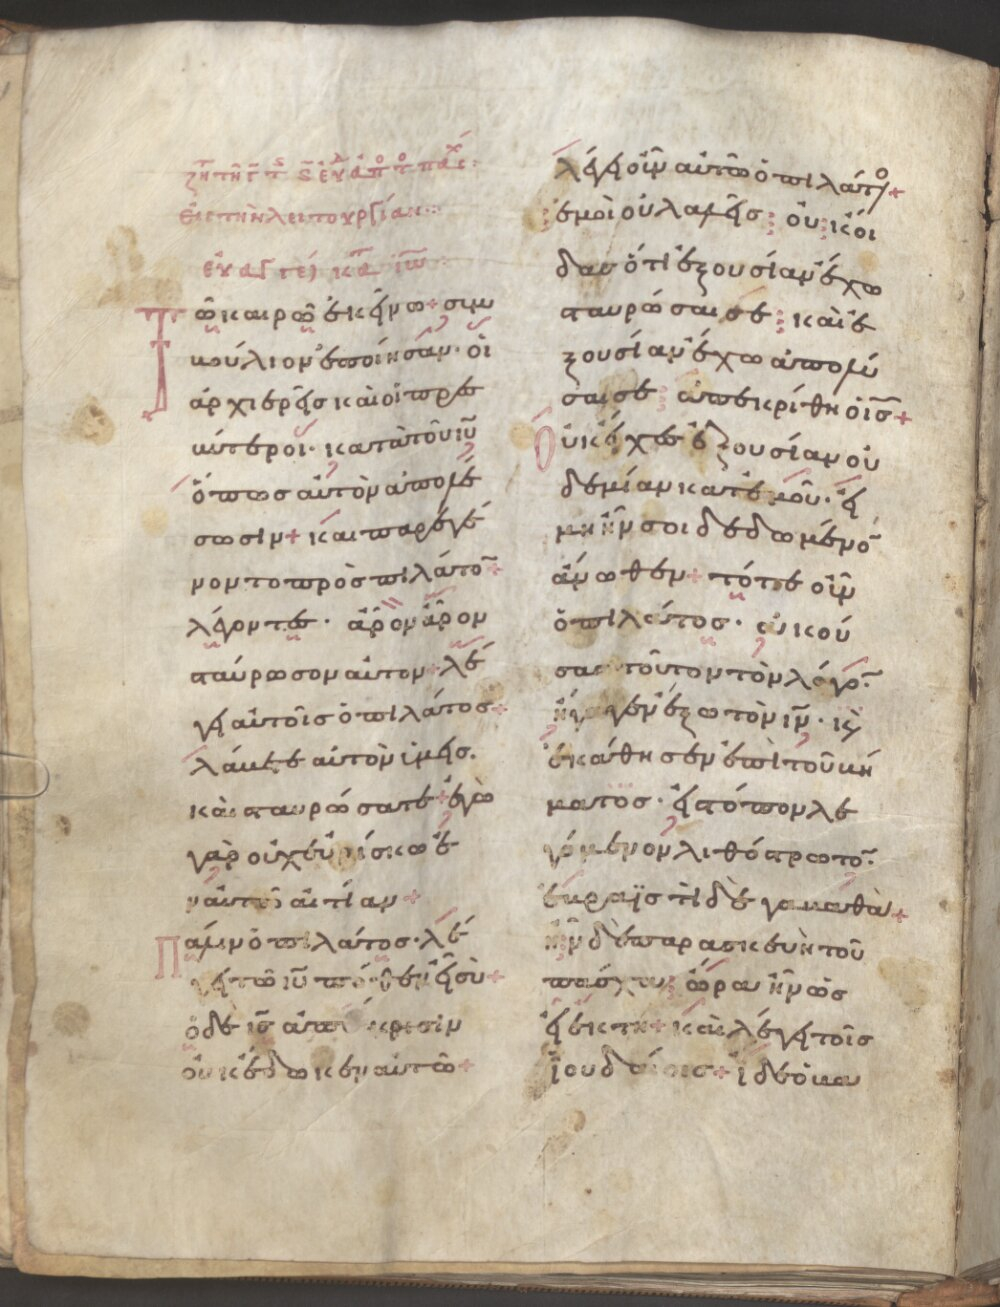 εἰς τὴν λειτουργίαν
εὐαγγε κατ ιω
Τῶ καιρῶ ἐκείνω + συμ
βούλιον ἐποίησαν · οἱ
ἀρχιερεῖς καὶ οἱ πρεσ
βύτεροι · κατὰ τοῦ ιυ
ὅπως αὐτὸν ἀπολέ
σωσιν + καὶ παρεγέ
νοντο πρὸς πιλάτον +
λέγοντες · ἆρον ἆρον
σταύρωσον αὐτον + λέ
γει αὐτοῖς ὁ πιλάτος +
λάβετε αὐτὸν ὑμεῖς .
καὶ σταυρώσατε + ἐγὼ
γὰρ οὐχ εὑρίσκω ἐ
ν αὐτῶ αἰτίαν +
Πάλιν ὁ πιλάτος · λέ
γει τῶ ιυ πόθεν εἶ σὺ +
ὁ δὲ ις ἀπόκρισιν
οὐκ ἔδωκεν αὐτῶ +
λέγει οὖν αὐτῶ ὁ πιλάτος +
ἐμοὶ οὐ λαλεῖς ⁝ οὐκ οἶ
δας ὅτι ἐξουσίαν ἔχω
σταυρώσαι σέ ⁝ καὶ ἐ
ξουσίαν ἔχω ἀπολῦ
σαι σε ⁝ ἀπεκρίθη ὁ ις +
Οὐκ ἔχεις ἐξουσίαν οὐ
δεμίαν κατ ἐμοῦ · εἰ
μὴ ἦν σοι δεδωμένον
ἄνωθεν + τότε οὖν
ὁ πιλάτος · ἀκού
σας τοῦτον τὸν λόγον
ἤγαγεν ἔξω τὸν ιν · κὶ
ἐκάθησεν ἐπὶ τοῦ βή
ματος · εἰς τόπον λε
γόμενον λιθόστρωτον
ἑβραϊστὶ δὲ γαβαθὰ +
ἦν δὲ παρασκευὴ τοῦ
πάσχα ⁝ ὥρα ἦν ὡς
εἱ ἕκτη + καὶ λέγει τοῖς
ἰουδαίοις + ἴδε ὁ βα